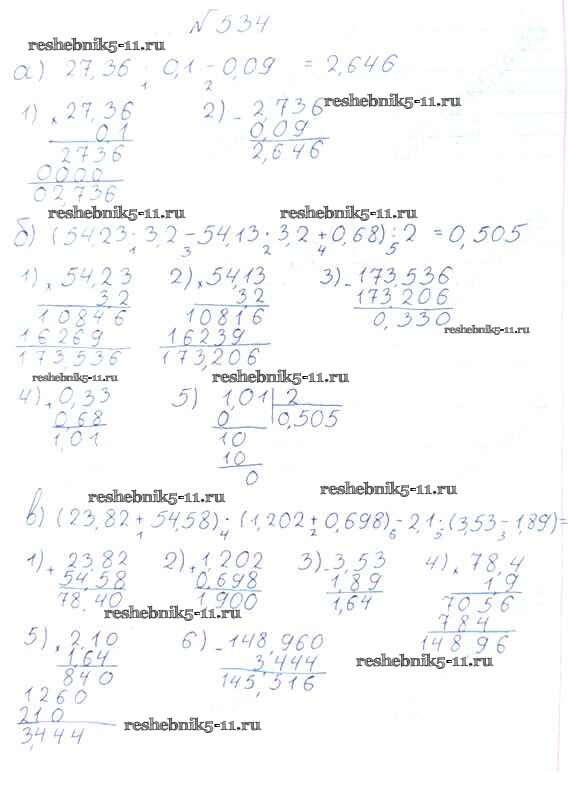 № 534
reshebnik5-11.ru
а) 27,36 · 0,1 - 0,09 = 2,646
1 2
1) × 27,36 2) - 2,736 reshebnik5-11.ru
0,1 0,09
2736 2,646
0000
02,736
reshebnik5-11.ru reshebnik5-11.ru
б) (54,23 · 3,2 - 54,13 · 3,2 + 0,68) : 2 = 0,505
1 3 2 4 5
1) × 54,23 2) × 54,13 3) - 173,536
3,2 3,2 173,206
10846 10816 0,330
16269 16239 reshebnik5-11.ru
173,536 173,206
reshebnik5-11.ru reshebnik5-11.ru
4) + 0,33 5) 1,01 2
0,68 0 0,505
1,01 10
10
0
reshebnik5-11.ru reshebnik5-11.ru
в) (23,82 + 54,58) · (1,202 + 0,698) - 2,1 · (3,53 - 1,89) =
1 4 2 6 5 3
1) + 23,82 2) + 1,202 3) - 3,53 4) × 78,4
54,58 0,698 1,89 1,9
78,40 1,900 1,64 7056
reshebnik5-11.ru 784
5) × 2,10 6) - 148,960 148,96
1,64 3,444 reshebnik5-11.ru
840 145,516
1260
210 reshebnik5-11.ru
3,444